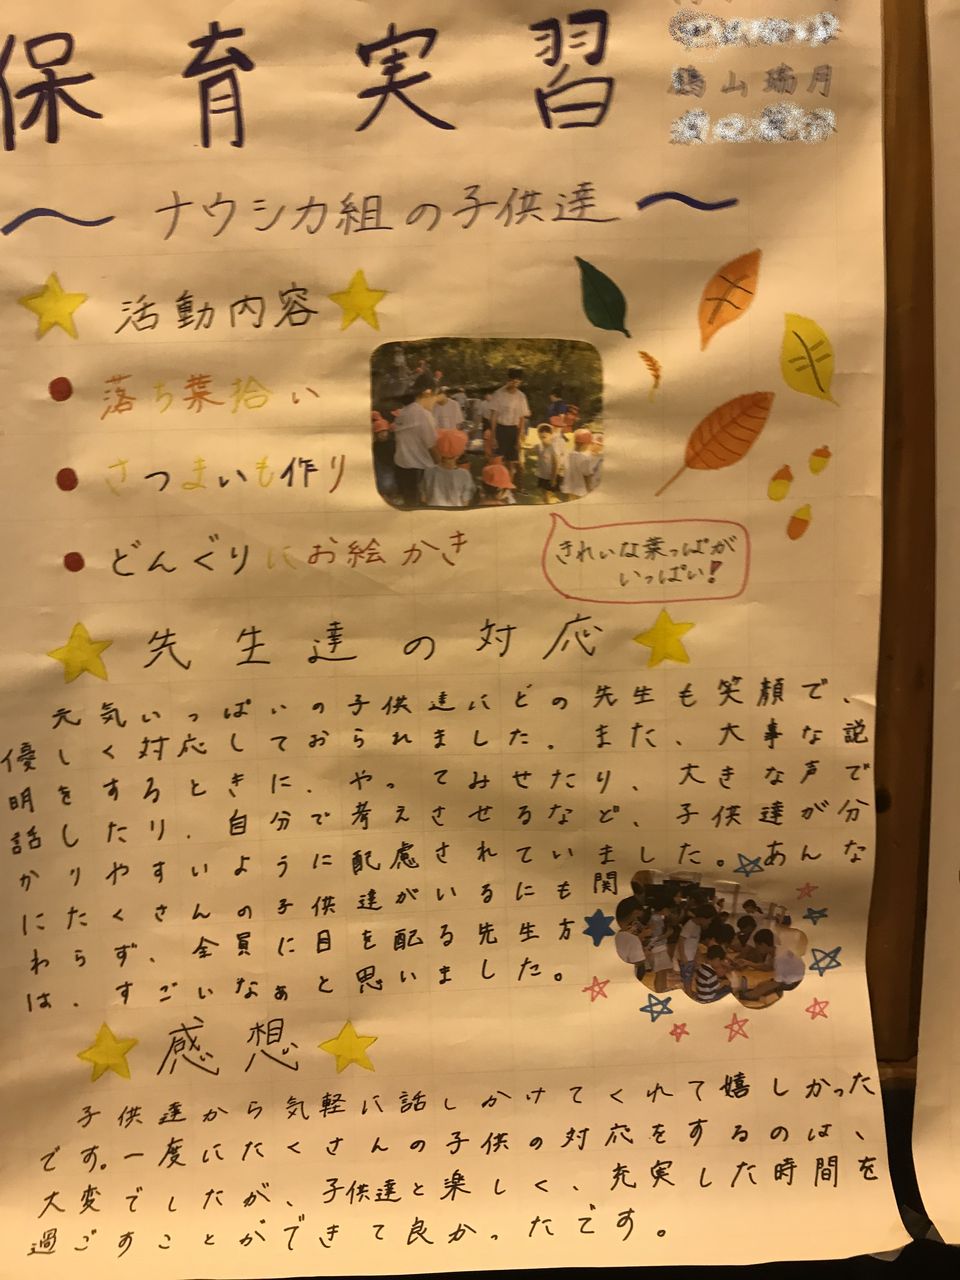 保育実習
鶴山瑞月
～ナウシカ組の子供達～
活動内容
落ち葉拾い
さつまいも作り
どんぐりにお絵かき
きれいな葉っぱが
いっぱい!
先生達の対応
元気いっぱいの子供達にどの先生も笑顔で、
優しく対応しておられました。また、大事な説
明をするときに、やってみせたり、大きな声で
話したり、自分で考えさせるなど、子供達が分
かりやすいように配慮されていました。あんな
にたくさんの子供達がいるにも関
わらず、全員に目を配る先生方
は、すごいなぁと思いました。
感想
子供達から気軽に話しかけてくれて嬉しかった
です。一度にたくさんの子供の対応をするのは、
大変でしたが、子供達と楽しく、充実した時間を
過ごすことができて良かったです。